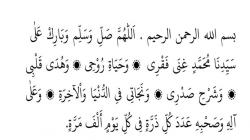 بسم الله الرحمن الرحيم . اَللّٰهُمَّ صَلِّ وَسَلِّمْ وَبَارِكْ عَلَى
سَيِّدِنَا مُحَمَّدٍ غِنَى فَقْرِى ۞ وَحَيَاةِ رُوْحِى ۞ وَهُدَى قَلْبِى
۞ وَشَرْحِ صَدْرِى ۞ وَنَجَاتِى فِى الدُّنْيَا وَالْاٰخِرَةِ ۞ وَعَلَى
آلِهِ وَصَحْبِهِ عَدَدَ كُلِّ ذَرَّةٍ فِى كُلِّ يَوْمٍ أَلْفَ مَرَّةٍ.